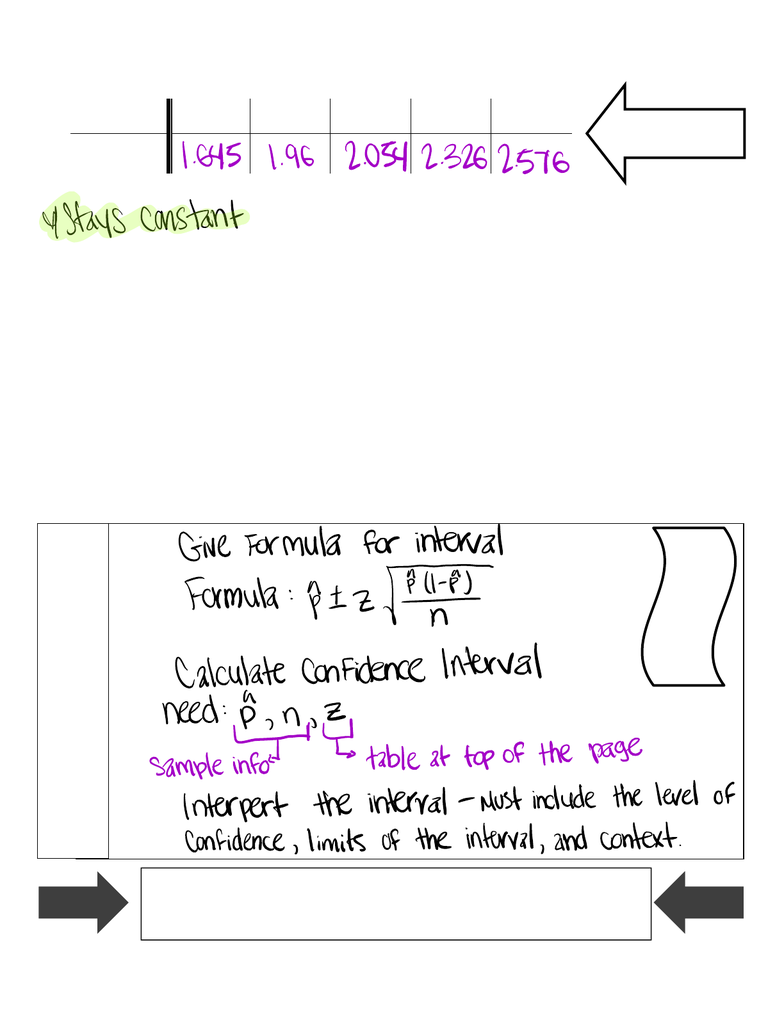 1.645 1.96 2.054 2.326 2.576
Stays constant
Give Formula for interval
Formula: p̂ ± z √(p̂(1-p̂)/n)
Calculate Confidence Interval
need: p̂, n, z
Sample info table at top of the page
Interpert the interval – Must include the level of
Confidence, limits of the interval, and context.